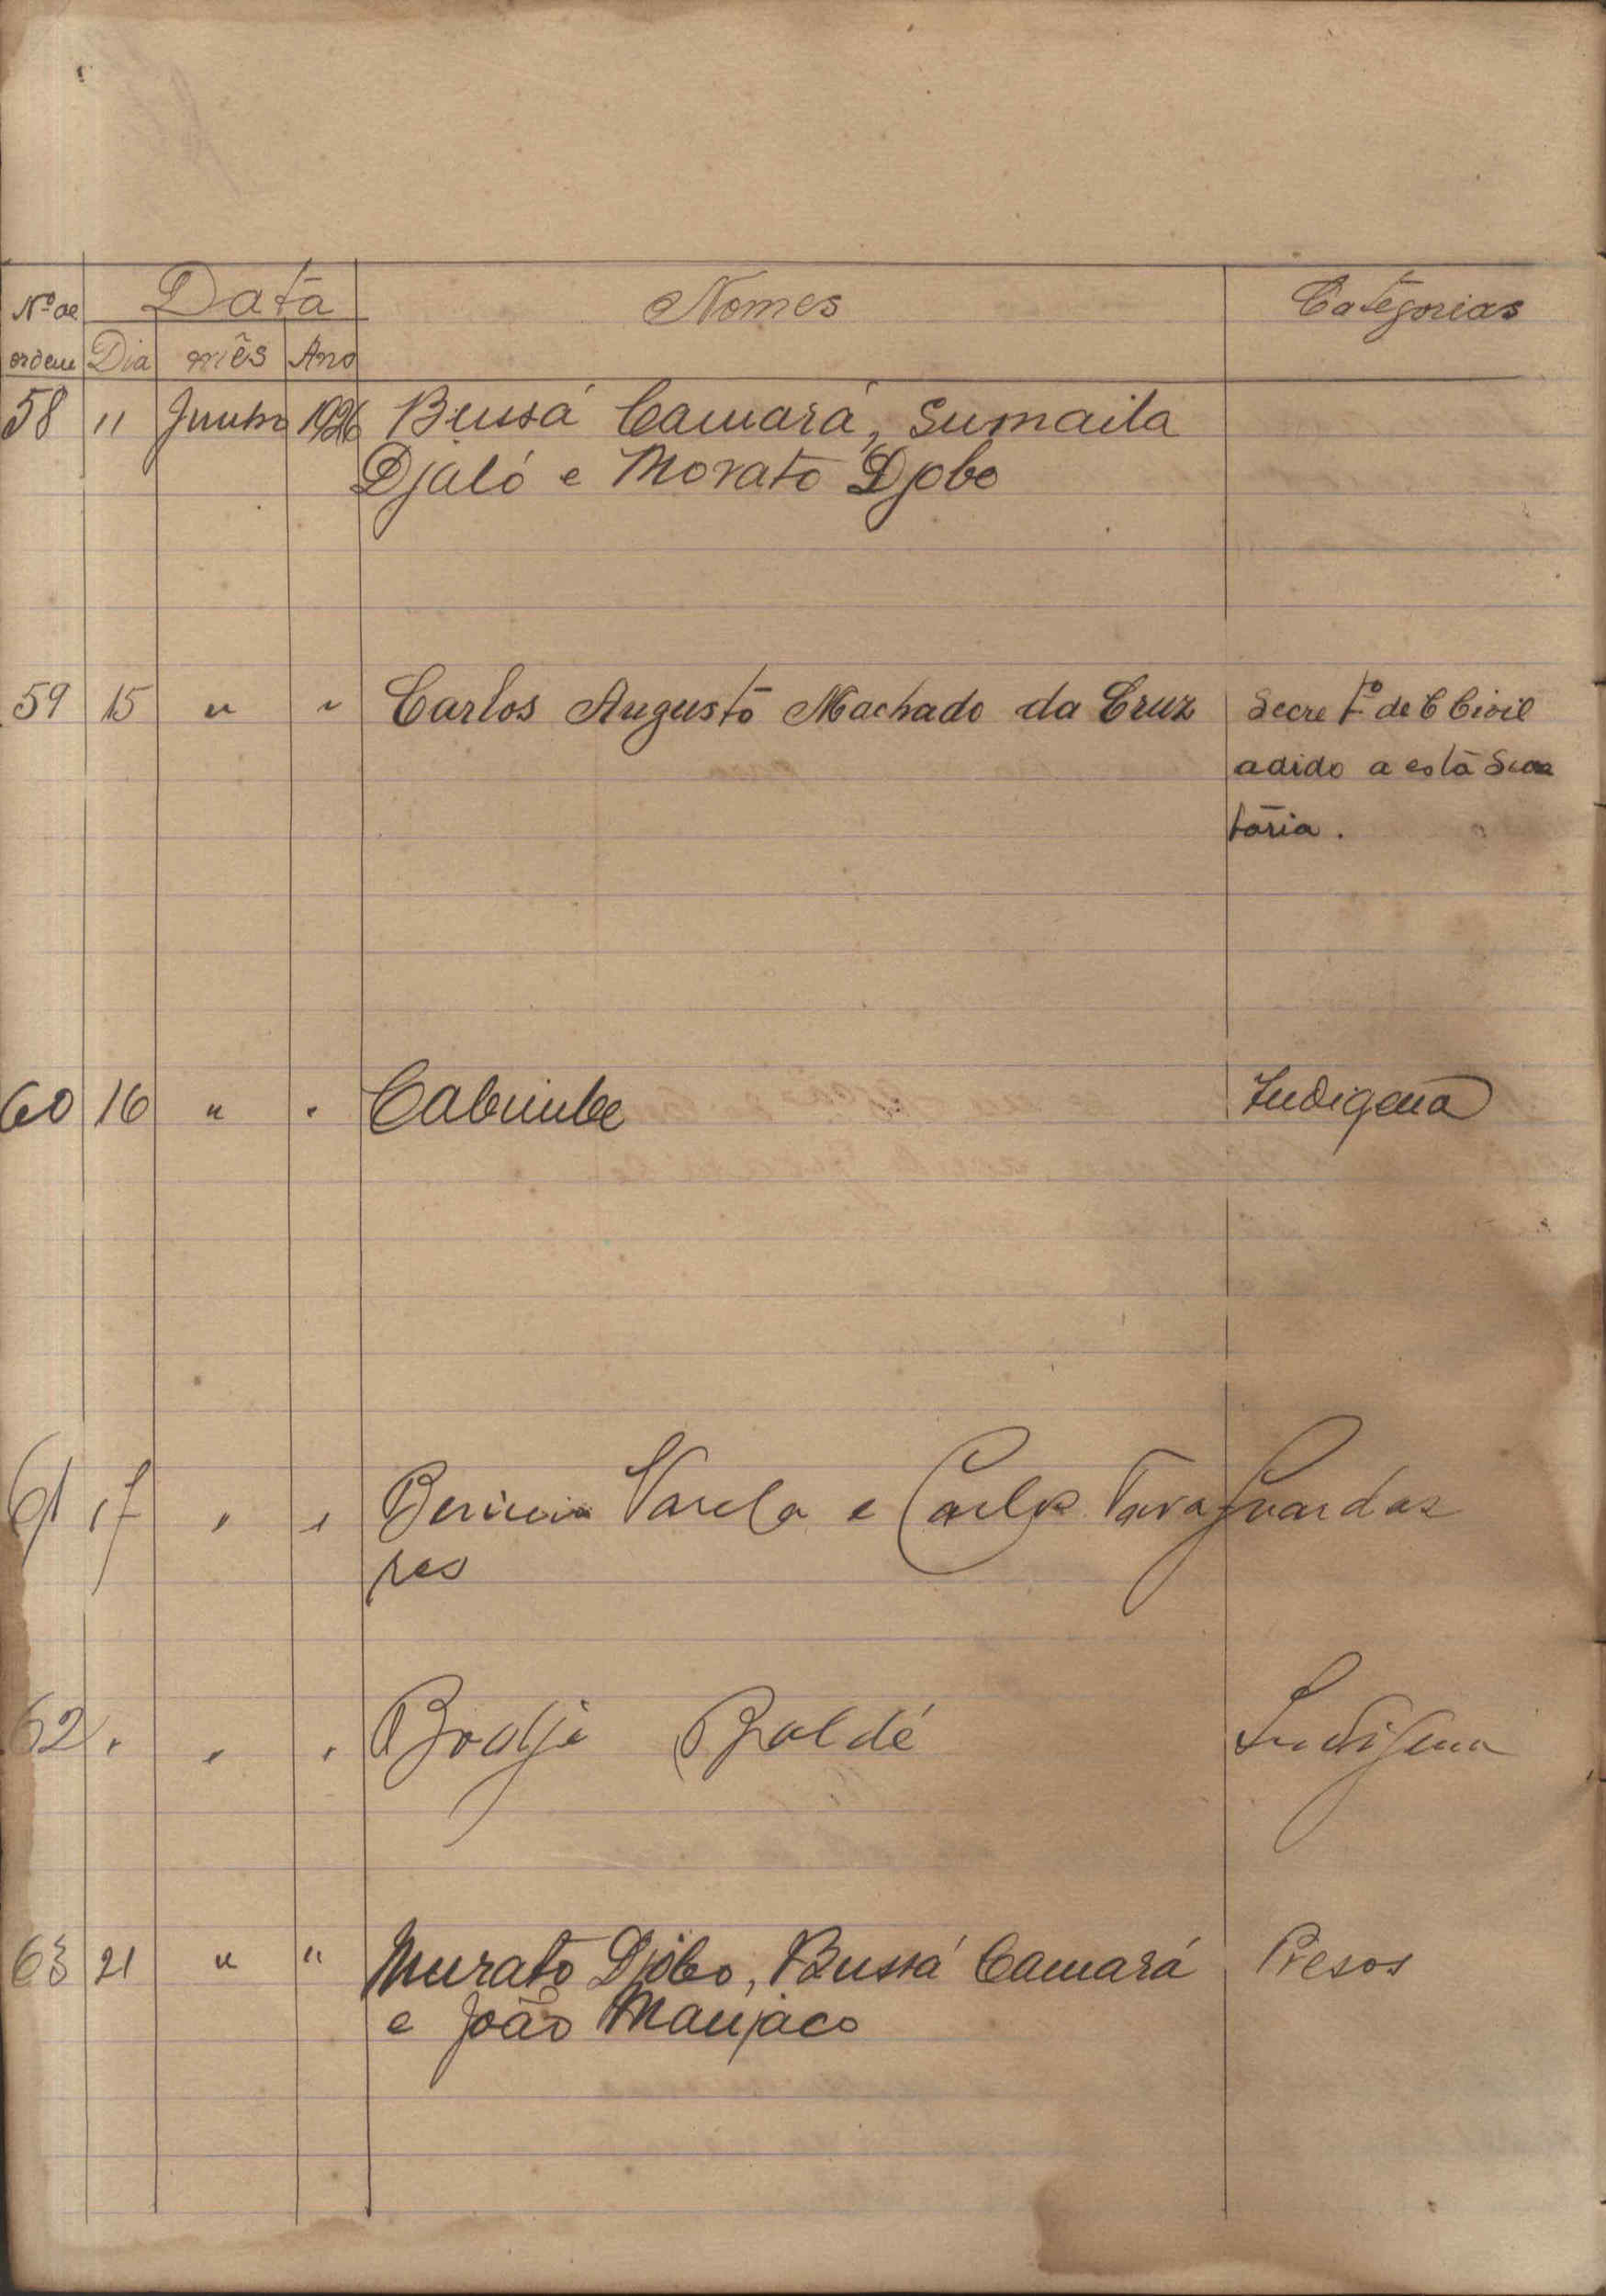 Nº de Data Nomes Categorias
ordem Dia mês Ano
58 11 Junho 1926 Bussá Camará, Sumaila
Djaló e Morato Djobo
59 15 " " Carlos Augusto Machado da Cruz Secretº de C Civil
adido a esta Secre
taria.
60 16 " " Indigena
61 17 " " Varela e Carlos Tava Guardas
res
62 " " " Baldé Indigena
63 21 " " Murato Djobo, Bussá Camará Presos
e João Manjaco